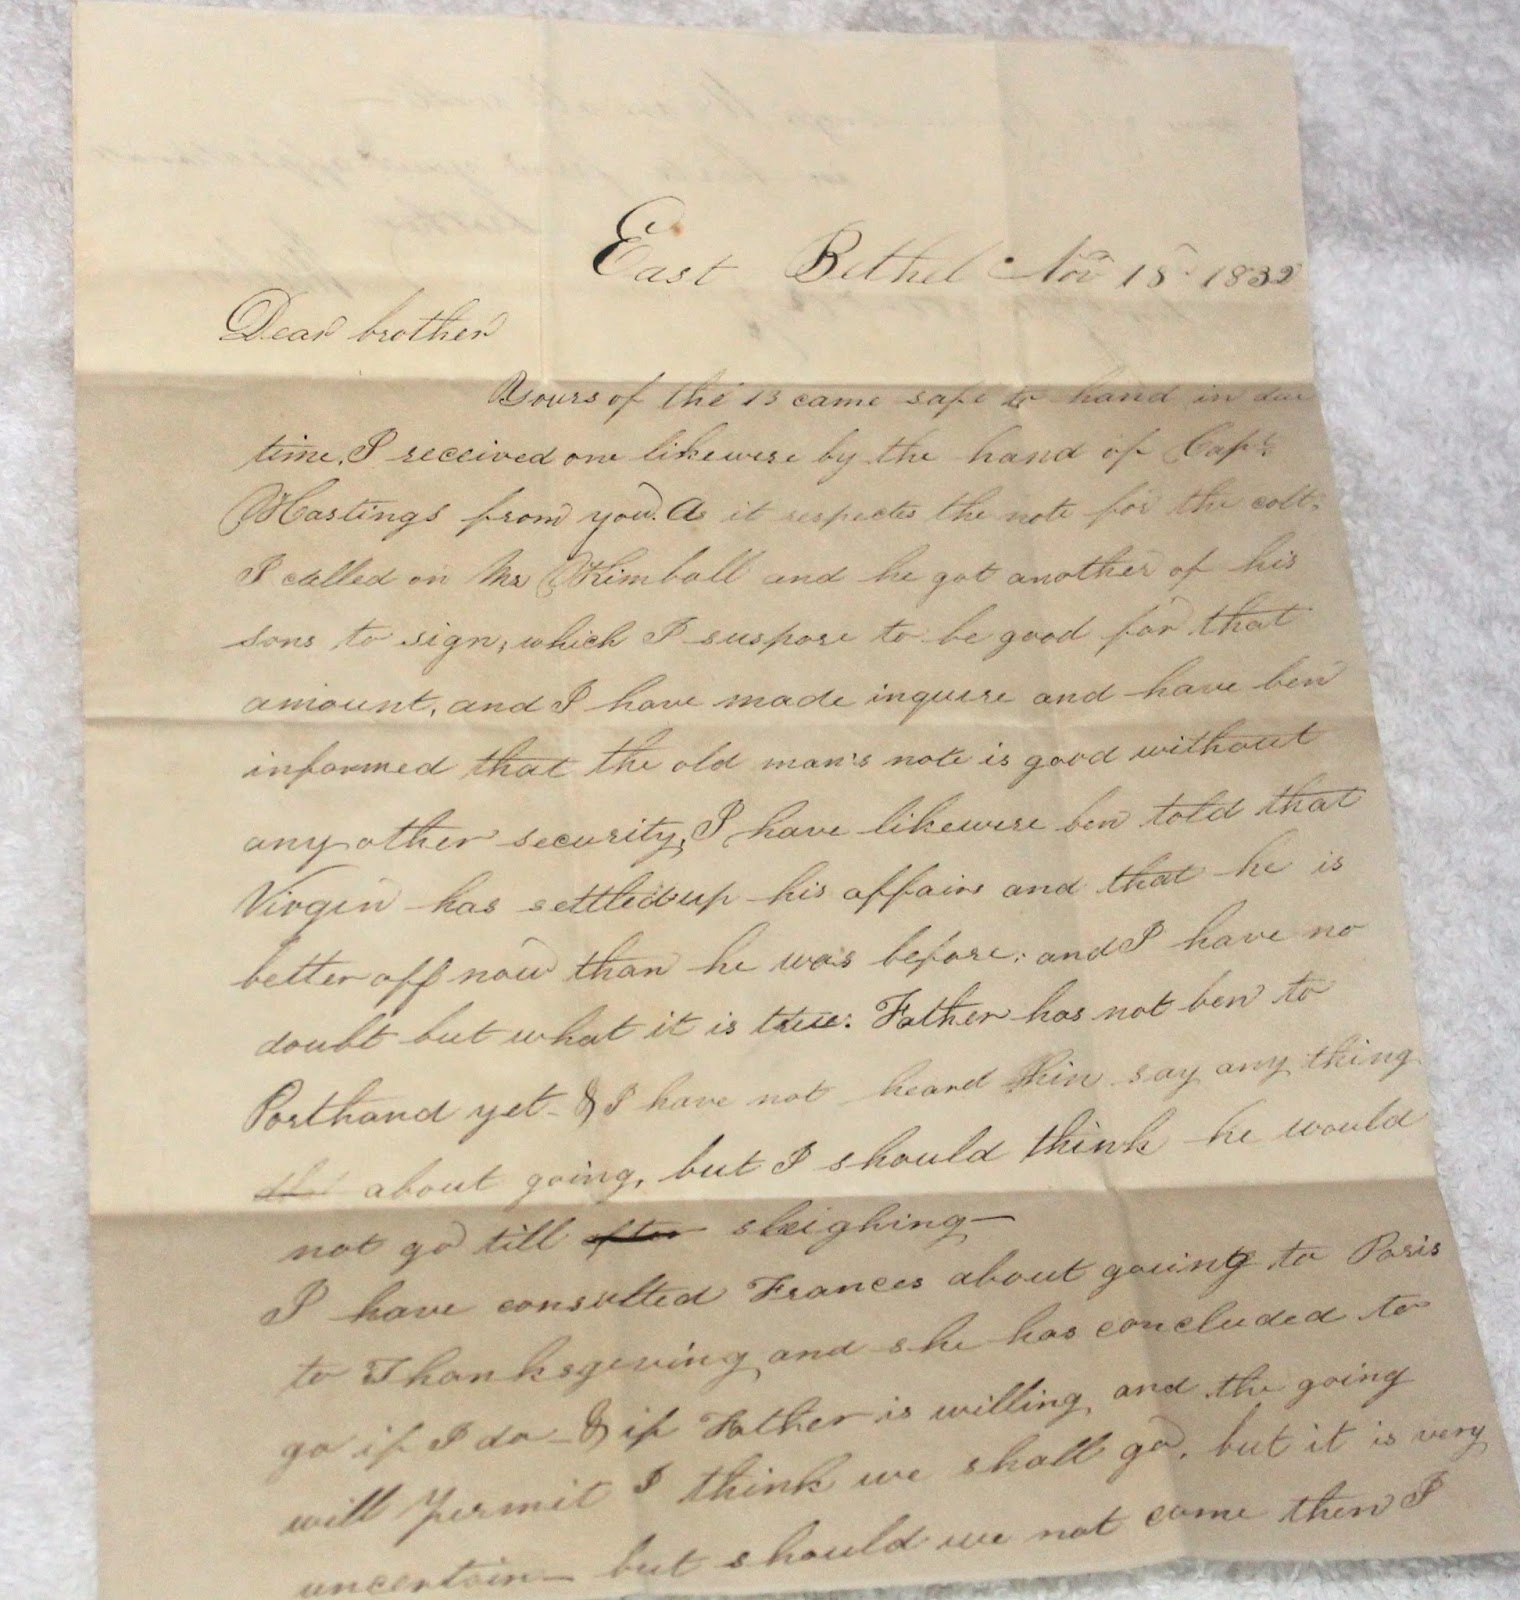 East Bethel Nov 18 1832
Dear brother
Yours of the 13 came safe to hand in due
time, I received one likewise by the hand of Capt.
Hastings from you. As it respects the note for the colt,
I called on Mr Kimball and he got another of his
sons to sign, which I suspose to be good for that
amount, and I have made inquire and have ben
informed that the old man's note is good without
any other security, I have likewise ben told that
Virgin has settled up his affairs and that he is
better off now than he was before: and I have no
doubt but what it is true: Father has not ben to
Porthand yet - & I have not heard him say any thing
about going, but I should think he would
not go till after sleighing—
I have consulted Frances about going to Paris
to Thanksgeving and she has concluded to
go if I do - & if Father is willing, and the going
will Permit I think we shall go, but it is very
uncertain — but should we not come then I